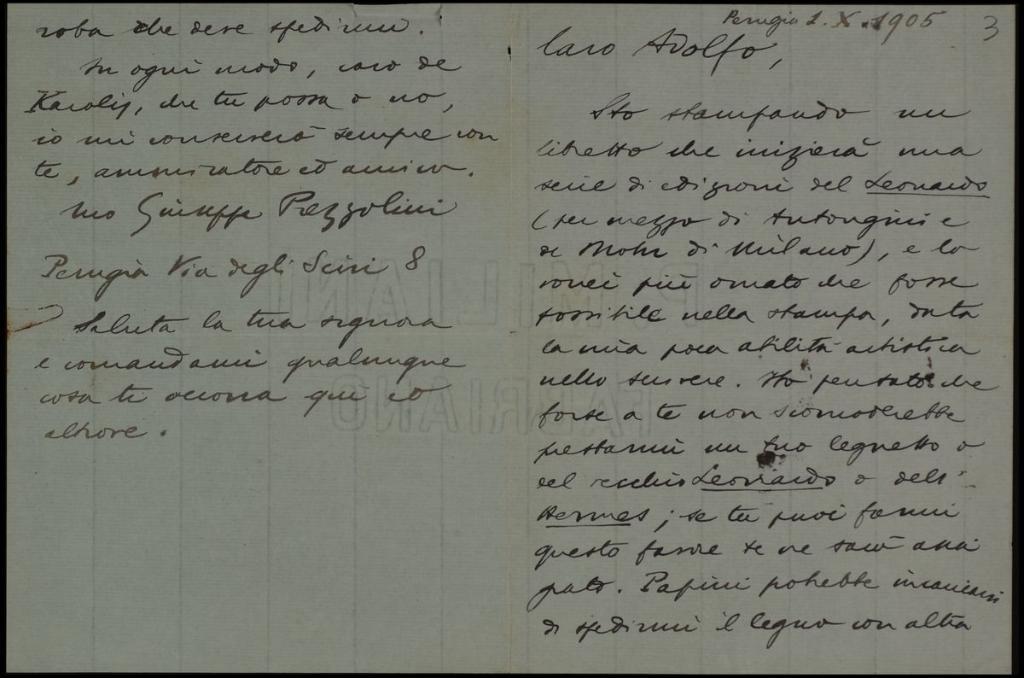 Perugia 1. X. 1905
3
Caro Adolfo,
Sto stampando un
libretto che inizierà una
serie di edizioni del Leonardo
(per mezzo di Antongini e
de Mohr di Milano), e lo
vorrei più ornato che fosse
possibile nella stampa, data
la mia poca abilità artistica
nello scrivere. Ho pensato che
forse a te non scomoderebbe
prestarmi un tuo legnetto o
del vecchio Leonardo o dell'
Hermes; se tu puoi farmi
questo favore te ne sarò assai
grato. Papini potrebbe incaricarsi
di spedirmi il legno con altra
roba che deve spedirmi.
In ogni modo, caro de
Karolis, che tu possa o no,
io mi conserverò sempre con
te, ammiratore ed amico.
tuo Giuseppe Prezzolini
Perugia Via degli Sciri 8
Saluta la tua signora
e comandami qualunque
cosa ti occorra qui ed
altrove.
P. MILIANI
FABRIANO